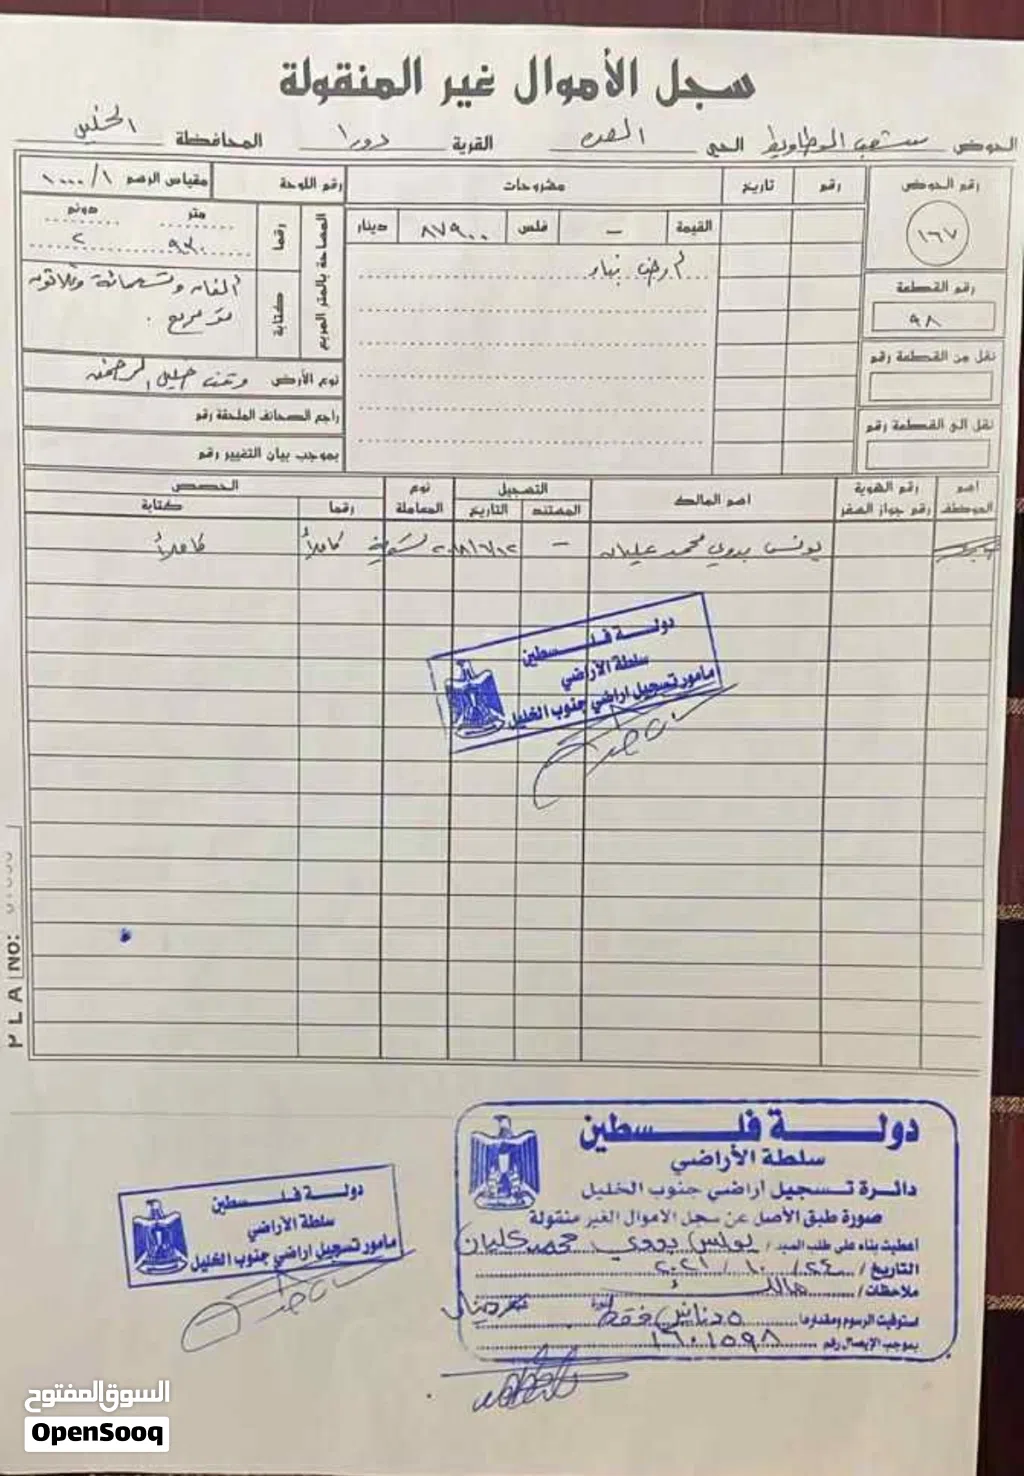 سجل الأموال غير المنقولة
الحوض الحي القرية دورا المحافظة الخليل
رقم الحوض رقم تاريخ مشروحات رقم اللوحة مقياس الرسم ١/١٠٠٠
١٦٧
القيمة — فلس ٨٧٩٠٠ دينار
المساحة بالمتر المربع رقما متر دونم
٩٣٠ ٢
أرض بناء
كتابة ألفان وتسعمائة وثلاثون
متر مربع .
رقم القطعة
٩٨
نقل من القطعة رقم
نوع الأرض وقف خليل الرحمن
راجع الصحائف الملحقة رقم
نقل الى القطعة رقم
بموجب بيان التغيير رقم
اسم الموظف رقم الهوية رقم جواز السفر اسم المالك التسجيل نوع المعاملة الحصص
المستند التاريخ رقما كتابة
يونس بدوي محمد عليان — تسوية كاملاً كاملاً
دولة فلسطين
سلطة الأراضي
مأمور تسجيل اراضي جنوب الخليل
PLA NO:
دولة فلسطين
سلطة الأراضي
دائرة تسجيل اراضي جنوب الخليل
صورة طبق الأصل عن سجل الاموال الغير منقولة
أعطيت بناء على طلب السيد / يونس بدوي محمد عليان
التاريخ / ٢٤ / ١٠ / ٢٠٢١
ملاحظات / مالك
استوفيت الرسوم ومقدارها ٥ دنانير فقط
بموجب الإيصال رقم ١٦٠١٥٩٨
دولة فلسطين
سلطة الأراضي
مأمور تسجيل اراضي جنوب الخليل
السوق المفتوح
OpenSooq